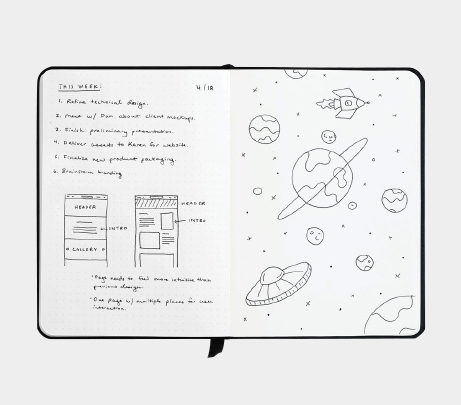 THIS WEEK: 4/18
1. Refine technical design.
2. Meet w/ Dan about client mockups.
3. Finish preliminary presentation.
4. Deliver assets to Karen for website.
5. Finalize new product packaging.
6. Brainstorm branding
HEADER HEADER
INTRO INTRO
GALLERY
*Page needs to feel more intuitive than
previous design.
*One page w/ multiple places for user
interaction.